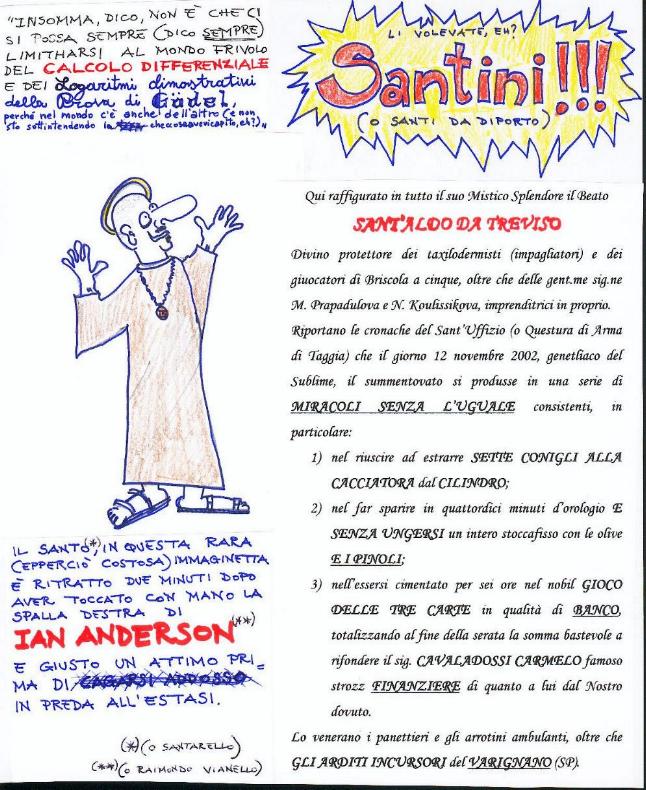 "INSOMMA, DICO, NON È CHE CI
SI POSSA SEMPRE (DICO SEMPRE)
LIMITHARSI AL MONDO FRIVOLO
DEL CALCOLO DIFFERENZIALE
E DEI Logaritmi dimostrativi
della Prova di Gödel,
perché nel mondo c'è anche dell'altro (e non
sto sottintendendo la checosaavevicapito, eh?)"
LI VOLEVATE, EH?
Santini!!!
(O SANTI DA DIPORTO)
Qui raffigurato in tutto il suo Mistico Splendore il Beato
SANT'ALDO DA TREVISO
Divino protettore dei taxilodermisti (impagliatori) e dei
giuocatori di Briscola a cinque, oltre che delle gent.me sig.ne
M. Prapadulova e N. Koulissikova, imprenditrici in proprio.
Riportano le cronache del Sant'Uffizio (o Questura di Arma
di Taggia) che il giorno 12 novembre 2002, genetliaco del
Sublime, il summentovato si produsse in una serie di
MIRACOLI SENZA L'UGUALE consistenti, in
particolare:
1) nel riuscire ad estrarre SETTE CONIGLI ALLA
CACCIATORA dal CILINDRO;
2) nel far sparire in quattordici minuti d'orologio E
SENZA UNGERSI un intero stoccafisso con le olive
E I PINOLI;
3) nell'essersi cimentato per sei ore nel nobil GIOCO
DELLE TRE CARTE in qualità di BANCO,
totalizzando al fine della serata la somma bastevole a
rifondere il sig. CAVALADOSSI CARMELO famoso
strozz FINANZIERE di quanto a lui dal Nostro
dovuto.
Lo venerano i panettieri e gli arrotini ambulanti, oltre che
GLI ARDITI INCURSORI del VARIGNANO (SP).
IL SANTO(*), IN QUESTA RARA
(EPPERCIÒ COSTOSA) IMMAGINETTA
È RITRATTO DUE MINUTI DOPO
AVER TOCCATO CON MANO LA
SPALLA DESTRA DI
IAN ANDERSON(**)
E GIUSTO UN ATTIMO PRI=
MA DI CAGARSI ADDOSSO
IN PREDA ALL'ESTASI.
(*) (O SANTARELLO)
(**) (O RAIMONDO VIANELLO)